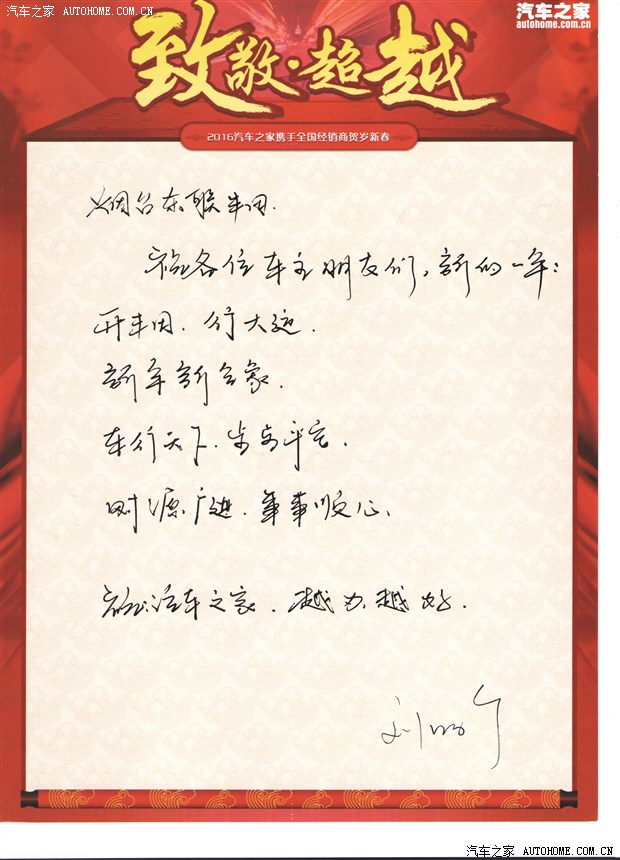 汽车之家 AUTOHOME.COM.CN
汽车之家
autohome.com.cn
致敬·超越
2016汽车之家携手全国经销商贺岁新春
烟台东联丰田.
祝各位车主朋友们,新的一年:
开丰田.行大运.
新年新气象.
车行天下.步步平安.
财源广进.事事顺心.
祝汽车之家.越办越好.
刘
汽车之家 AUTOHOME.COM.CN